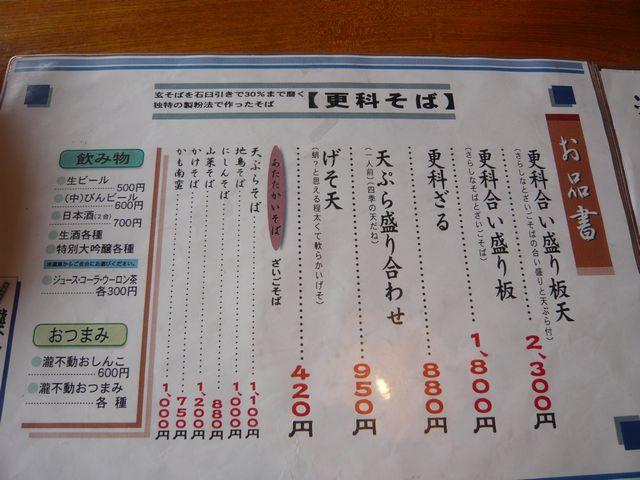 お品書
玄そばを石臼引きで30%まで磨く
独特の製粉法で作ったそば
【更科そば】
更科合い盛り板天 2,300円
(さらしなとざいごそばの合い盛りと天ぷら付)
更科合い盛り板 1,800円
(さらしなそばとざいごそば)
更科ざる 880円
天ぷら盛り合わせ 950円
(一人前)(四季の天だね)
げそ天 420円
(蛸?と思える程太くて軟らかいげそ)
あたたかいそば
ざいごそば
天ぷらそば 1,100円
地鳥そば 1,000円
にしんそば 880円
山菜そば 1,200円
かけそば 750円
かも南蛮 1,000円
飲み物
生ビール
500円
(中)びんビール
600円
日本酒(2合)
700円
生酒各種
特別大吟醸各種
冷蔵庫からご自由にお選びください。
ジュース・コーラ・ウーロン茶
各300円
おつまみ
瀧不動おしんこ
600円
瀧不動おつまみ
各種